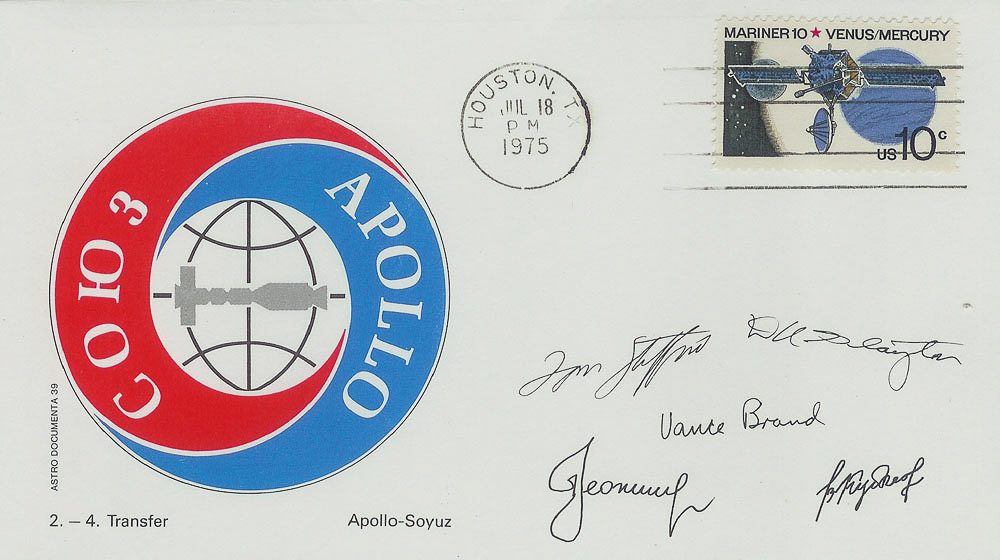 MARINER 10 ★ VENUS/MERCURY
US 10c
HOUSTON, TX
JUL 18
PM
1975
СОЮЗ
APOLLO
ASTRO DOCUMENTA 39
2. – 4. Transfer
Apollo-Soyuz
Tom Stafford
DK Slayton
Vance Brand
Леонов